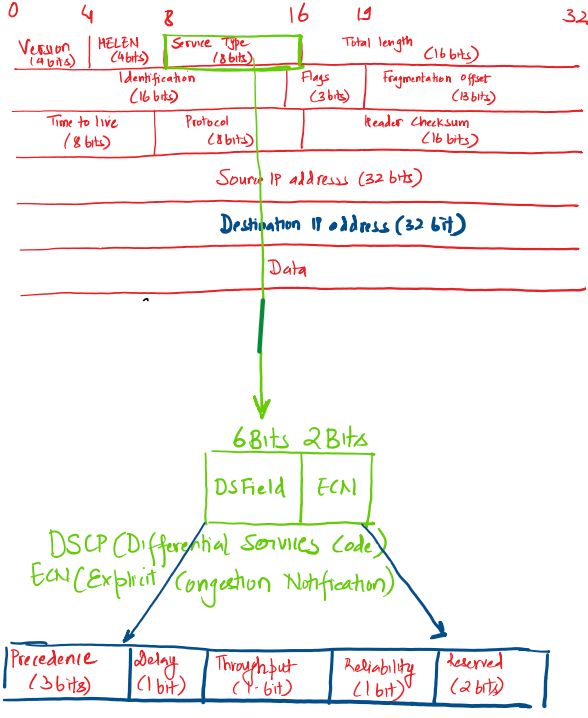 0 4 8 16 19 32
Version HELEN Service Type Total length
(4bits) (4bits) (8bits) (16 bits)
Identification Flags Fragmentation offset
(16 bits) (3 bits) (13 bits)
Time to live Protocol Header Checksum
(8 bits) (8 bits) (16 bits)
Source IP addresss (32 bits)
Destination IP address (32 bit)
Data
6Bits 2Bits
DSField ECN
DSCP (Differential Services Code)
ECN (Explicit Congestion Notification)
Precedence Delay Throughput Reliability Reserved
(3 bits) (1 bit) (1-bit) (1 bit) (2 bits)